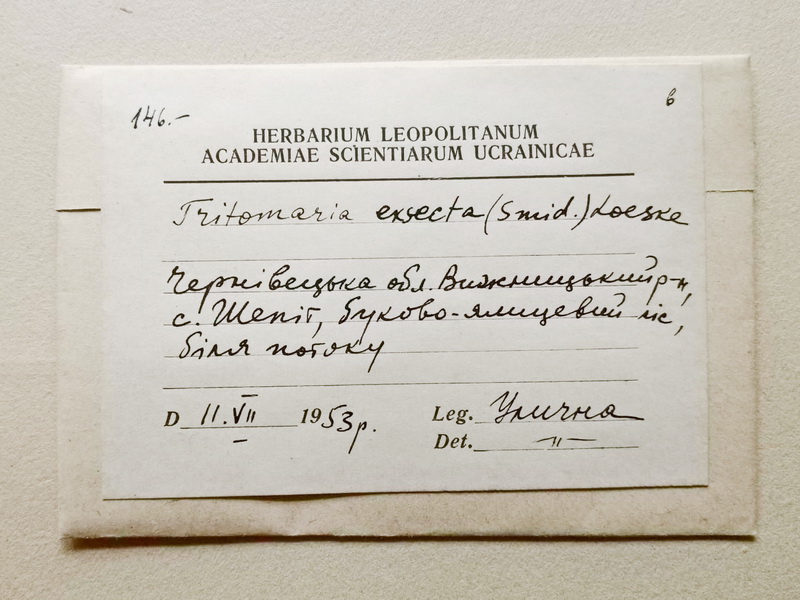 146.-
в
HERBARIUM LEOPOLITANUM
ACADEMIAE SCIENTIARUM UCRAINICAE
Tritomaria exsecta (Smid.) Loeske
Чернівецька обл. Вижницький р-н,
с. Шепіт, буково-ялицевий ліс,
біля потоку
D 11.VII 1953р.
Leg. Улична
Det. -"-